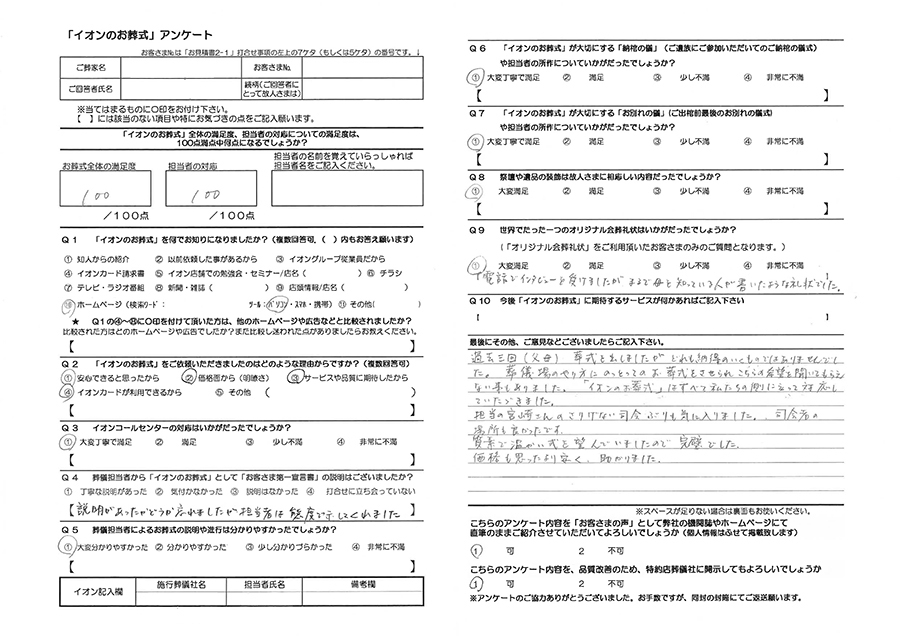 「イオンのお葬式」アンケート
お客さま№は「お見積書2-1」打合せ事項の左上の7ケタ（もしくは5ケタ）の番号です。↓
ご葬家名 お客さま№.
ご回答者氏名 続柄(ご回答者にとって故人さまは)
※当てはまるものに〇印をお付け下さい。
【 】には該当のない項目や特にお気づきの点をご記入願います。
「イオンのお葬式」全体の満足度、担当者の対応についての満足度は、
100点満点中何点になるでしょうか？
お葬式全体の満足度 担当者の対応 担当者の名前を覚えていらっしゃれば
担当者名をご記入ください。
100 100
／100点 ／100点
Q１ 「イオンのお葬式」を何でお知りになりましたか？（複数回答可、（ ）内もお答え願います）
① 知人からの紹介 ② 以前依頼した事があるから ③ イオングループ従業員だから
④ イオンカード請求書 ⑤ イオン店舗での勉強会・セミナー/店名（ ） ⑥ チラシ
⑦ テレビ・ラジオ番組 ⑧ 新聞・雑誌（ ） ⑨ 店頭情報/店名（ ）
⑩ ホームページ（検索ﾜｰﾄﾞ： ﾂｰﾙ：パソコン・ｽﾏﾎ・携帯） ⑪ その他（ ）
★ Q１の④～⑩に〇印を付けて頂いた方は、他のホームページや広告などと比較されましたか？
比較された方はどのホームページや広告でしたか？また比較し迷われた点がありましたらお教えください。
【 】
Q２ 「イオンのお葬式」をご依頼いただきましたのはどのような理由からですか？（複数回答）
① 安心できると思ったから ② 価格面から（明瞭さ） ③ サービスや品質に期待したから
④ イオンカードが利用できるから ⑤ その他（ ）
【 】
Q３ イオンコールセンターの対応はいかがだったでしょうか？
① 大変丁寧で満足 ② 満足 ③ 少し不満 ④ 非常に不満
【 】
Q４ 葬儀担当者から「イオンのお葬式」として「お客さま第一宣言書」の説明はございましたか？
① 丁寧な説明があった ② 気付かなかった ③ 説明はなかった ④ 打合せに立ち会っていない
【説明があったかどうか忘れましたが担当者は態度で示してくれました】
Q５ 葬儀担当者によるお葬式の説明や進行は分かりやすかったでしょうか？
① 大変分かりやすかった ② 分かりやすかった ③ 少し分かりづらかった ④ 非常に不満
【 】
イオン記入欄 施行葬儀社名 担当者氏名 備考欄
Q６ 「イオンのお葬式」が大切にする「納棺の儀」（ご遺族にご参加いただいてのご納棺の儀式）
や担当者の所作についていかがだったでしょうか？
① 大変丁寧で満足 ② 満足 ③ 少し不満 ④ 非常に不満
【 】
Q７ 「イオンのお葬式」が大切にする「お別れの儀」（ご出棺前最後のお別れの儀式）
や担当者の所作についていかがだったでしょうか？
① 大変丁寧で満足 ② 満足 ③ 少し不満 ④ 非常に不満
【 】
Q８ 祭壇や遺品の装飾は故人さまに相応しい内容だったでしょうか？
① 大変満足 ② 満足 ③ 少し不満 ④ 非常に不満
【 】
Q９ 世界でたった一つのオリジナル会葬礼状はいかがだったでしょうか？
（「オリジナル会葬礼状」をご利用頂いたお客さまのみのご質問となります。）
① 大変満足 ② 満足 ③ 少し不満 ④ 非常に不満
【電話でインタビューを受けましたがまるで母を知っている人が書いたような礼状でした。】
Q１０ 今後「イオンのお葬式」に期待するサービスが何かあればご記入下さい
【 】
最後にその他、ご意見などございましたらご記入下さい。
過去三回（父母）葬式を出しましたがどれも納得のいくものではありませんでし
た。葬儀場のやり方にのっとってのお葬式をさせられ、こちらの希望を聞いてもらえ
ない事もありました。「イオンのお葬式」はすべて私たちの側に立って対応し
ていただきました。
担当の宮崎さんのさりげない司会ぶりも気に入りました。司会者の
場所も良かったです。
質素で温かい式を望んでいましたので完璧でした。
価格も思ったより安く、助かりました。
※スペースが足りない場合は裏面もお使いください。
こちらのアンケート内容を「お客さまの声」として弊社の機関誌やホームページにて
直筆のままご紹介させていただいてよろしいでしょうか（個人情報はふせて掲載致します）
1 可 2 不可
こちらのアンケート内容を、品質改善のため、特約店葬儀社に開示してもよろしいでしょうか
1 可 2 不可
※アンケートのご協力ありがとうございました。お手数ですが、同封の封筒にてご返送願います。